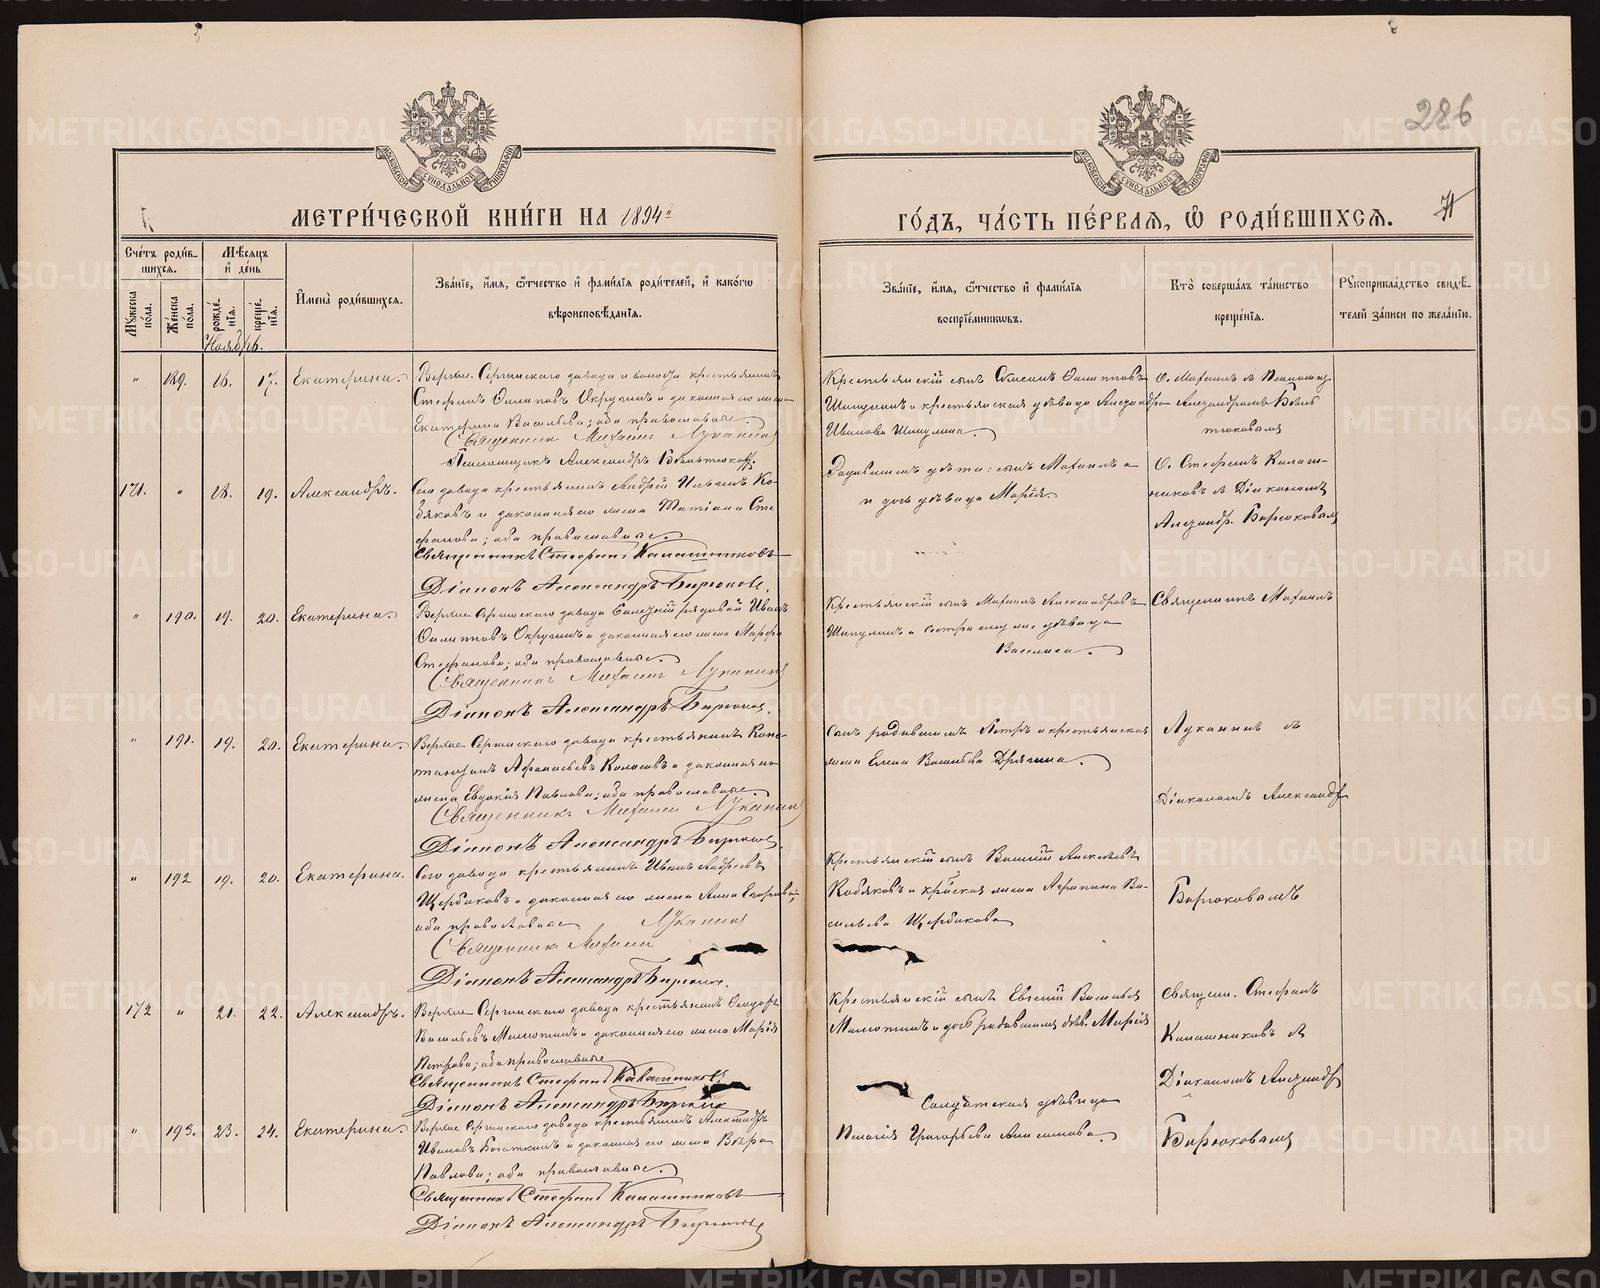 286
МЕТРИ́ЧЕСКОЙ КНИ́ГИ НА 1894 г
ГО́ДЪ, ЧА́СТЬ ПЕ́РВАЯ, Ѽ РОДИ́ВШИХСѦ.
71
Сче́тъ роди́в-
шихсѧ.
Мѣ́сѧцъ
и҆ де́нь
И҆мена̀ роди́вшихсѧ.
Зва́нїе, и҆́мѧ, ѻ҆́тчество и҆ фами́лїѧ роди́телей, и҆ како́гѡ
вѣроисповѣ́данїѧ.
Зва́нїе, и҆́мѧ, ѻ҆́тчество и҆ фами́лїѧ
воспрїе́мникѡвъ.
Кто̀ соверша́лъ та́инство
креще́нїѧ.
Рꙋкоприкла́дство свидѣ́-
телей за́писи по жела́нїю.
Мꙋ́жеска по́ла.
Же́нска по́ла.
рожде́нїѧ.
креще́нїѧ.
Ноябрь.
" 189. 16. 17. Екатерина.
Верхне-Сергинскаго завода и волости крестьянинъ
Стефанъ Филиповъ Окружинъ и законная его жена
Екатерина Васильева; оба православные.
Священникъ Михаилъ Луканинъ
Псаломщикъ Александръ
Крестьянскій сынъ Филипповъ
Шипулинъ и крестьянская дѣвица Александра
Иванова Шипулина.
С. Михаилъ съ Псаломщ.
Александромъ
171. " 18. 19. Александръ.
Сего завода крестьянинъ Андрей Ильинъ Ко-
бяковъ и законная его жена Татіана Сте-
фанова; оба православные.
Священникъ Стефанъ Калашниковъ
Діаконъ Александръ Бирюковъ.
Родившагося дѣти: сынъ Михаилъ и
и дочь дѣвица Марія.
С. Стефанъ Калаш-
никовъ съ Діакономъ
Александр. Бирюковымъ
" 190. 19. 20. Екатерина.
Верхне-Сергинскаго завода рядовой Иванъ
Филипповъ Окружинъ и законная его жена Марфа
Стефанова; оба православные.
Священникъ Михаилъ Луканинъ
Діаконъ Александръ Бирюковъ.
Крестьянскій сынъ Михаилъ Александровъ
Шипулинъ и сестра его дѣвица
Василиса.
Священникъ Михаилъ
" 191. 19. 20. Екатерина.
Верхне-Сергинскаго завода крестьянинъ Конс-
тантинъ Афанасьевъ Колосовъ и законная его
жена Евдокія Павлова; оба православные.
Священникъ Михаилъ Луканинъ
Діаконъ Александръ Бирюковъ
Сынъ родившагося Петръ и крестьянская
жена Елена Васильева Дрягина.
Луканинъ съ
Діакономъ Александр
" 192 19. 20. Екатерина.
Сего завода крестьянинъ Иванъ Андреевъ
Щербаковъ и законная его жена Анна Егорова;
оба православные
Луканинъ
Священникъ Михаилъ
Діаконъ Александръ Бирюковъ.
Крестьянскій сынъ Василій Алексѣевъ
Кобяковъ и кр-ская жена Агрипина Ва-
сильева Щербакова
Бирюковымъ
172 " 21. 22. Александръ.
Верхне-Сергинскаго завода крестьянинъ Феодоръ
Васильевъ Малютинъ и законная его жена Марія
Петрова; оба православные
Священникъ Стефанъ Калашниковъ
Діаконъ Александръ Бирюковъ
Крестьянскій сынъ Евгеній Васильевъ
Малютинъ и дочь родившагося дѣв. Марія
Священ. Стефанъ
Калашниковъ съ
Діакономъ Александр
" 193. 23. 24. Екатерина.
Верхне-Сергинскаго завода крестьянинъ Александръ
Ивановъ Богаткинъ и законная его жена Вѣра
Павлова; оба православные.
Священникъ Стефанъ Калашниковъ
Діаконъ Александръ Бирюковъ
Солдатская дѣвица
Пелагія Григорьева Анисимова.
Бирюковымъ
METRIKI.GASO-URAL.RU